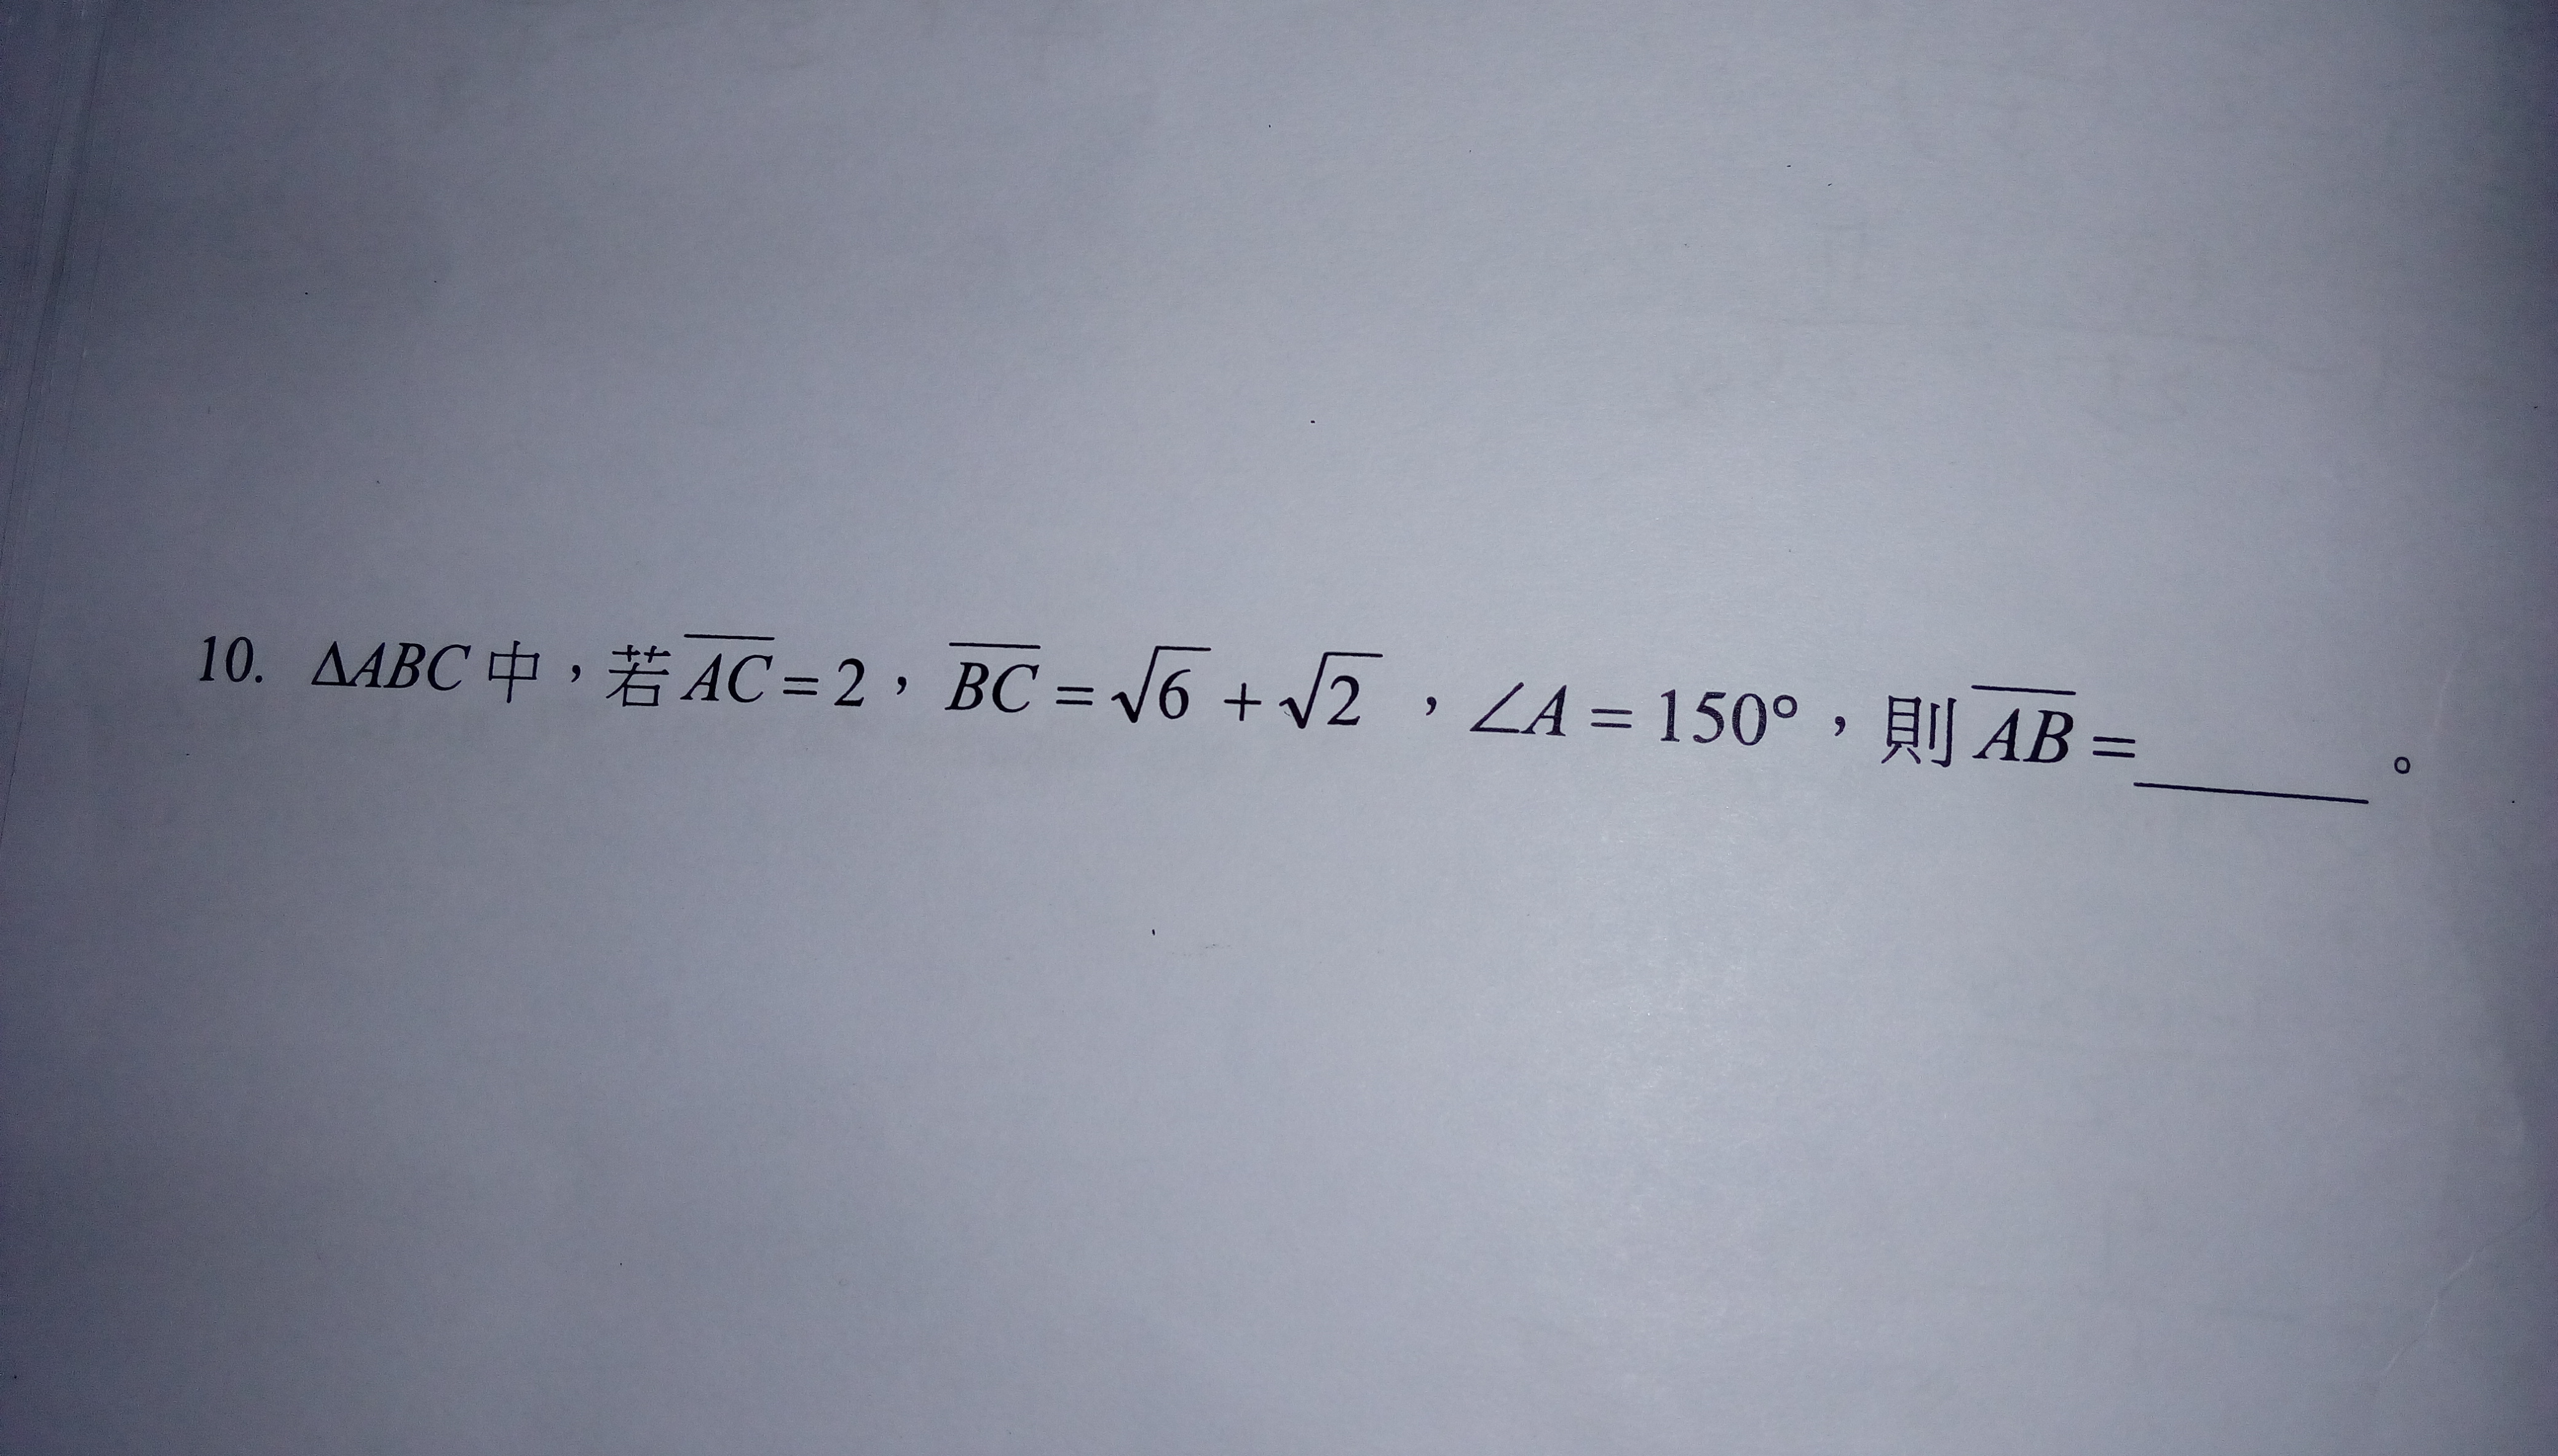 10. ΔABC 中，若 \overline{AC} = 2，\overline{BC} = \sqrt{6} + \sqrt{2}，∠A = 150°，則 \overline{AB} = ______。